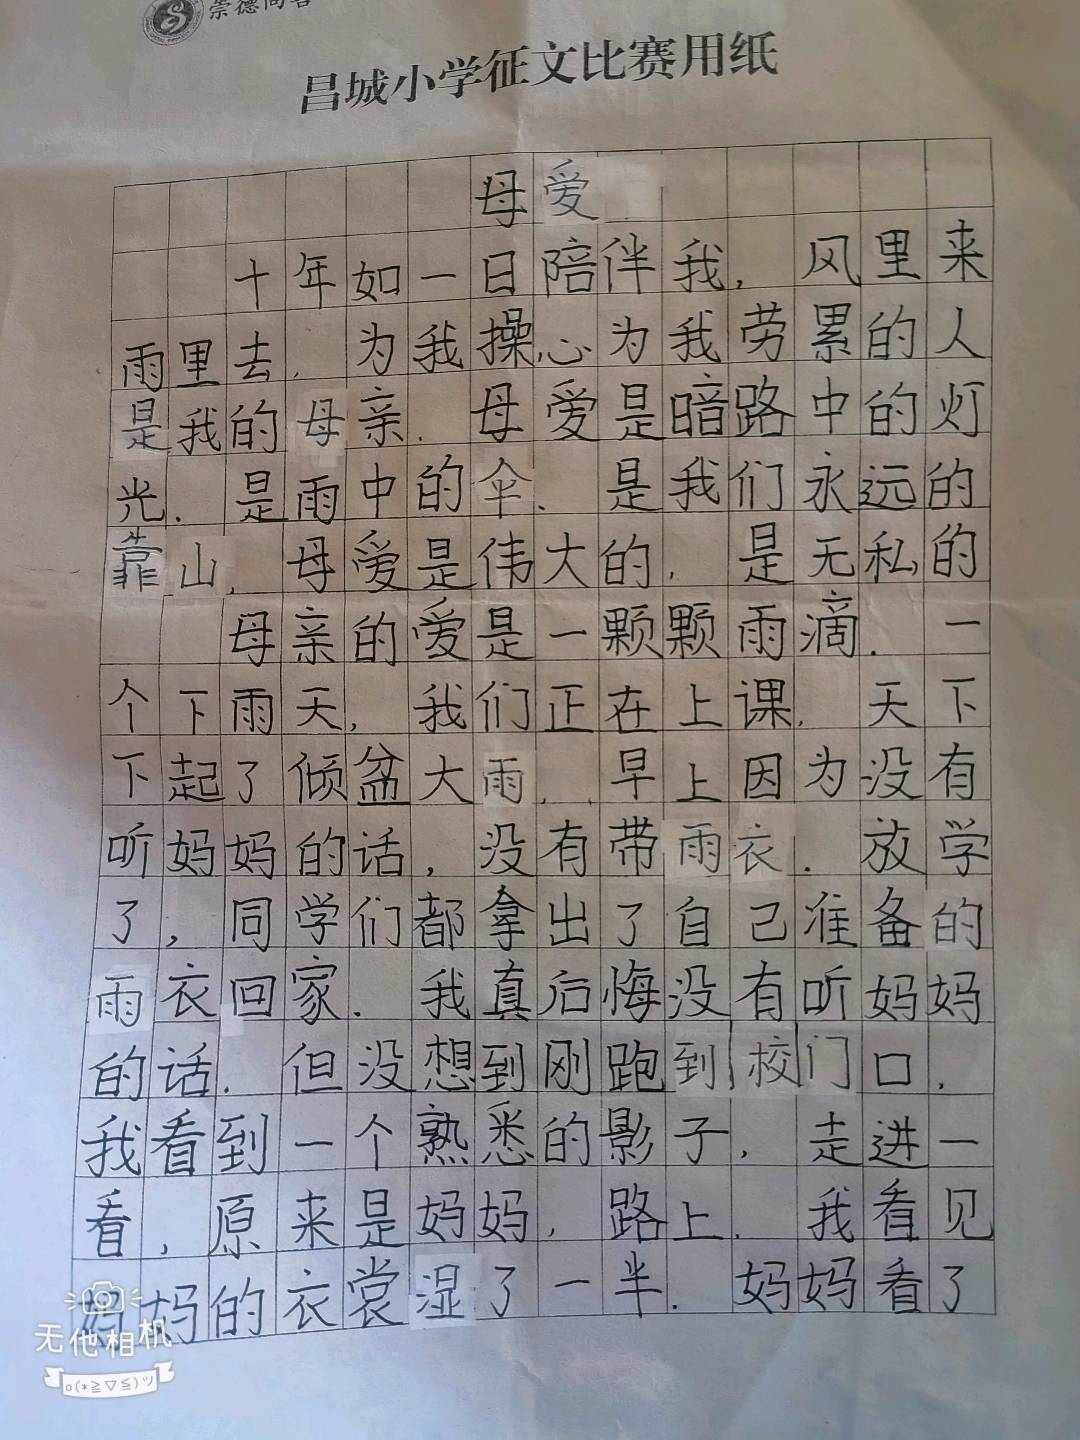 崇德尚善
昌城小学征文比赛用纸
母爱
十年如一日陪伴我，风里来
雨里去，为我操心为我劳累的人
是我的母亲．母爱是暗路中的灯
光．是雨中的伞．是我们永远的
靠山，母爱是伟大的，是无私的
母亲的爱是一颗颗雨滴．一
个下雨天，我们正在上课．天下
下起了倾盆大雨．早上因为没有
听妈妈的话，没有带雨衣．放学
了，同学们都拿出了自己准备的
雨衣回家．我真后悔没有听妈妈
的话．但没想到刚跑到校门口，
我看到一个熟悉的影子，走进一
看，原来是妈妈，路上．我看见
妈妈的衣裳湿了一半．妈妈看了
无他相机
o(*≧▽≦)ツ